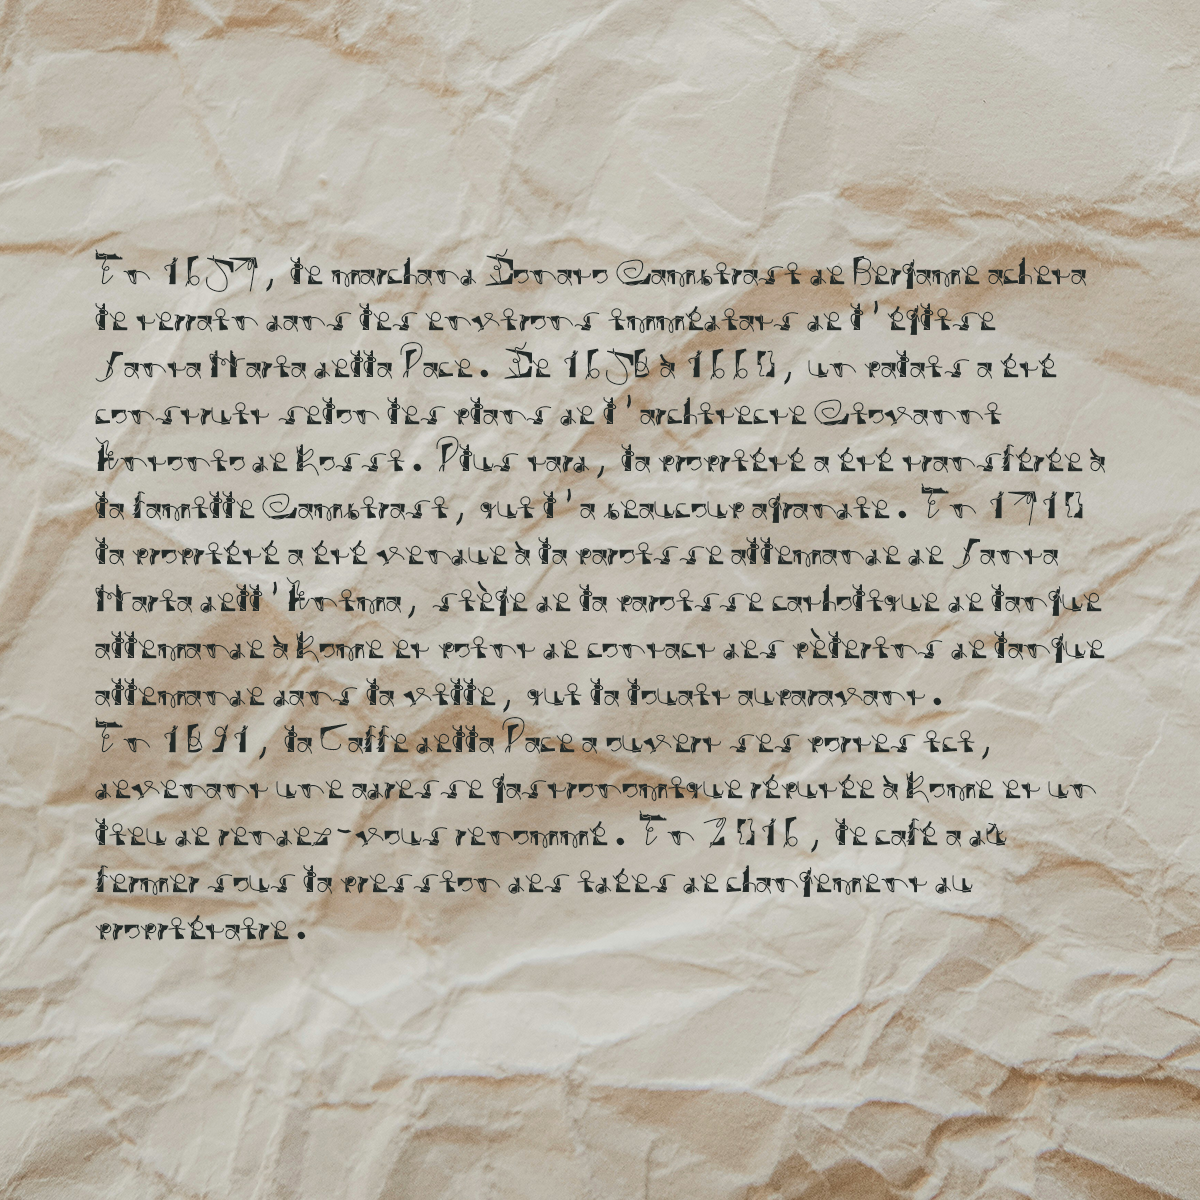 En 1657, le marchand Donato Gambirasi de Bergame acheta
le terrain dans les environs immédiats de l'église
Santa Maria della Pace. De 1658 à 1660, un palais a été
construit selon les plans de l'architecte Giovanni
Antonio de Rossi. Plus tard, la propriété a été transférée à
la famille Gambirasi, qui l'a beaucoup agrandie. En 1710
la propriété a été vendue à la paroisse allemande de Santa
Maria dell'Anima, siège de la paroisse catholique de langue
allemande à Rome et point de contact des pèlerins de langue
allemande dans la ville, qui la louait auparavant.
En 1891, la Caffe della Pace a ouvert ses portes ici,
devenant une adresse gastronomique réputée à Rome et un
lieu de rendez-vous renommé. En 2016, le café a dû
fermer sous la pression des idées de changement du
propriétaire.